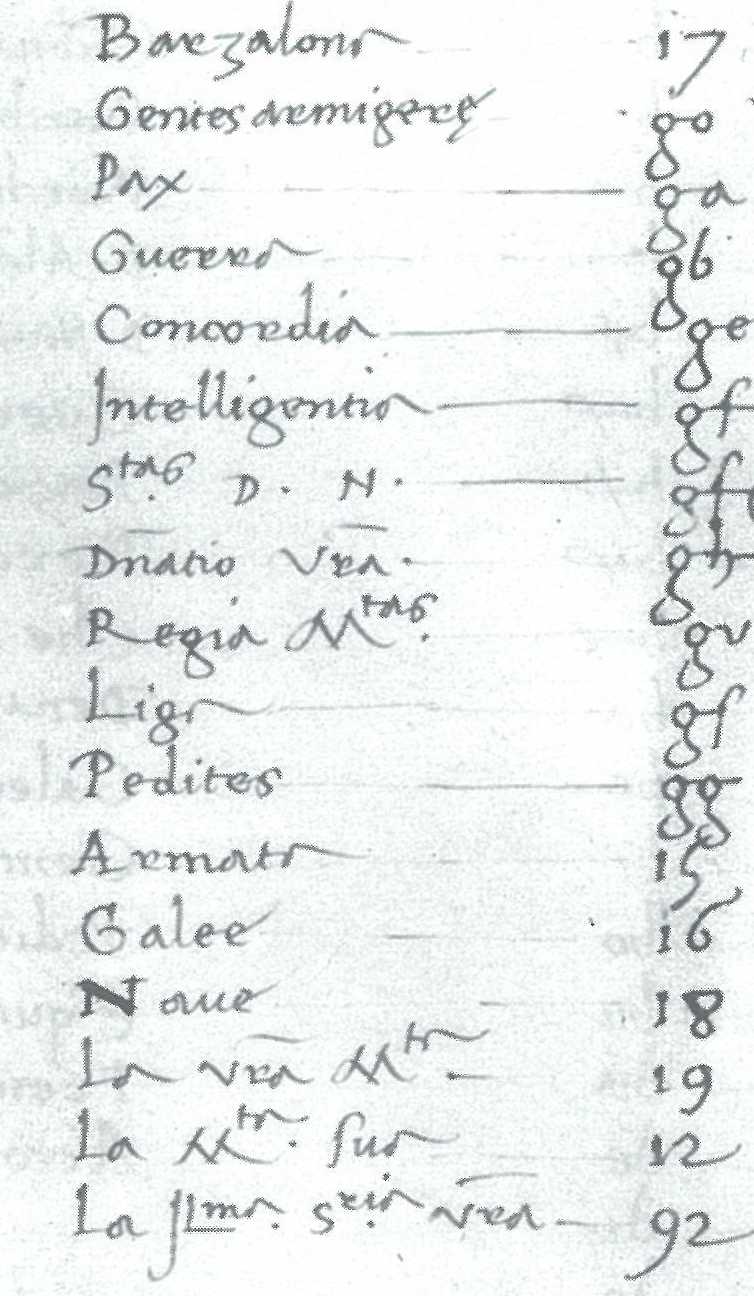 Barzalona 17
Gentes armigerę go
Pax ga
Guerra gb
Concordia ge
Intelligentia gf
S.tas D. N.
Dn̄atio Vr̄a.
Regia M.tas gv
Liga gf
Pedites gg
Armata 15
Galee 16
Naue 18
La vr̄a M.ta 19
La M.ta sua 12
La Jll.ma S.ria vr̄a 92